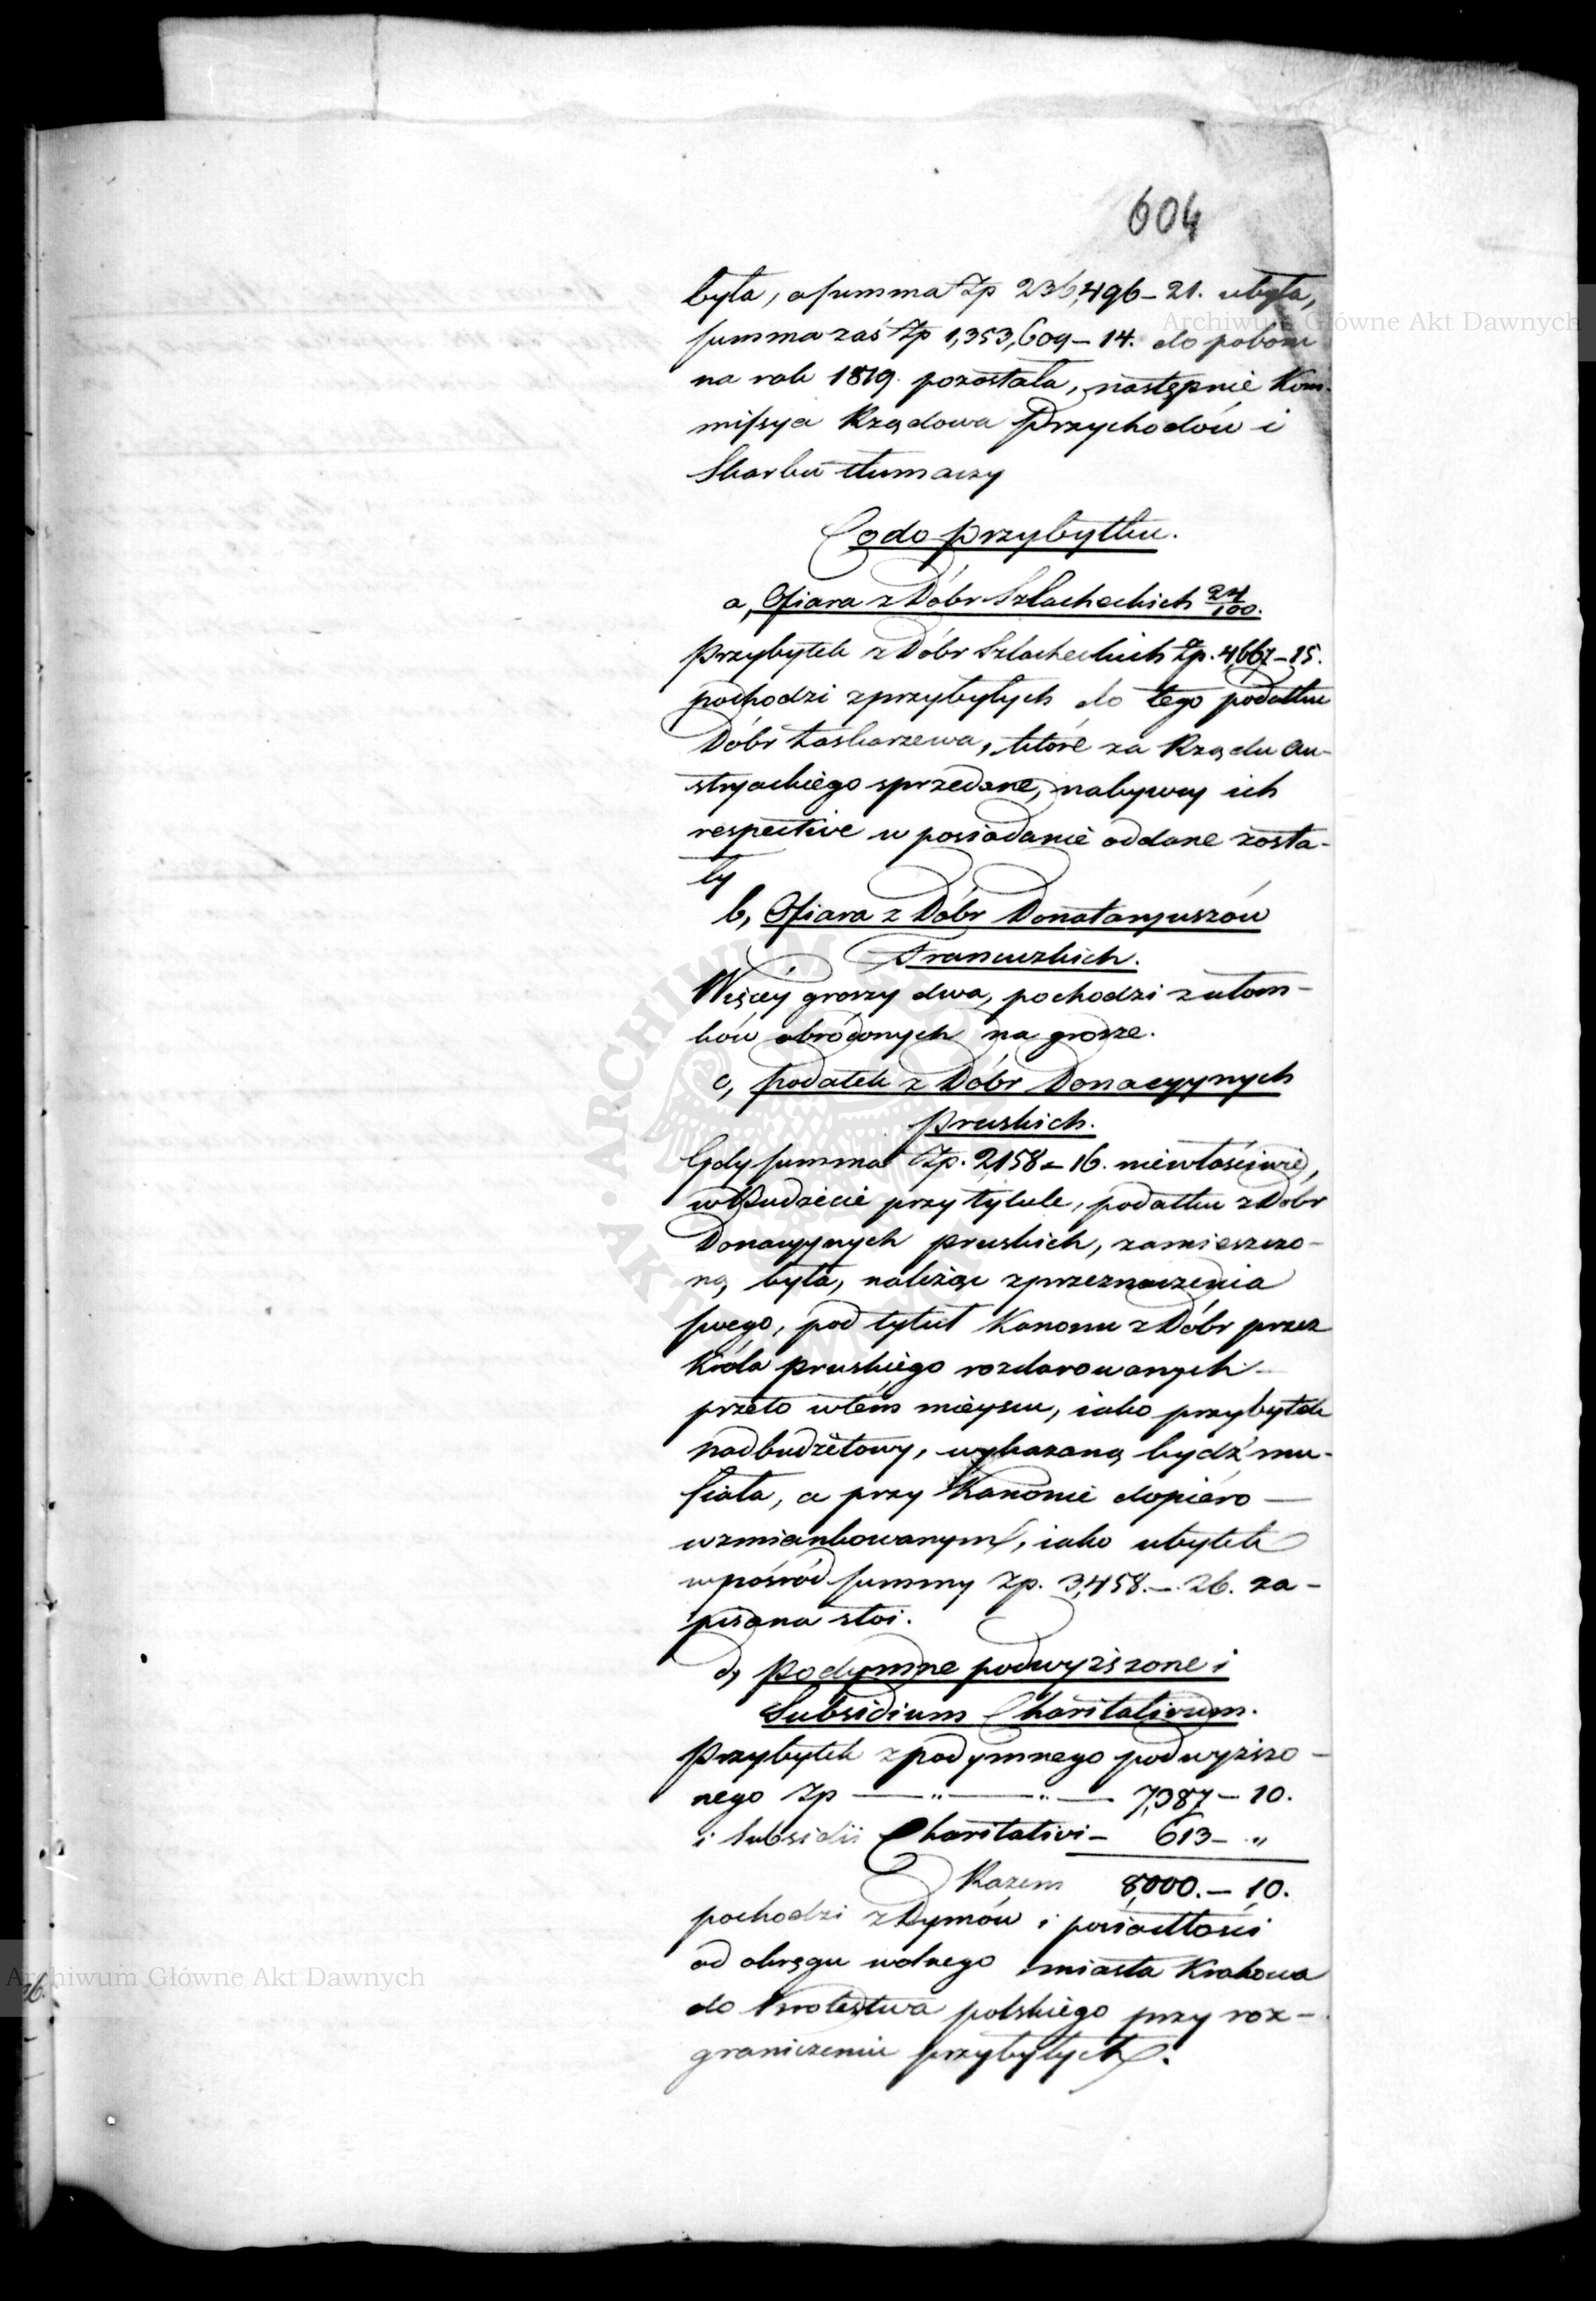 604
była, a summa Zp 236,496 – 21. ubyła,
summa zaś Zp 1,353,609 – 14. do poboru
na rok 1819. pozostała, następnie Kom-
missya Rządowa Przychodów i
Skarbu tłumaczy
Co do przybytku.
a, Ofiara z Dóbr Szlacheckich 24/100.
Przybytek z Dóbr Szlacheckich Zp. 4,667 – 15.
pochodzi z przybyłych do tego podatku
Dóbr Łaskarzewa, które za Rządu Au-
stryackiego sprzedane, nabywcy ich
respective w posiadanie oddane zosta-
ły
b, Ofiara z Dóbr Donataryuszów
Francuzkich.
Więcéy groszy dwa, pochodzi z ułom-
ków obróconych na grosze.
c, podatek z Dóbr Donacyynych
Pruskich.
Gdy summa Zp. 2158 – 16. niewłaściwie,
w Budżecie przy tytule, podatku z Dóbr
Donacyynych pruskich, zamieszczo-
ną była, należąc z przeznaczenia
swego, pod tytuł Kanonu z Dóbr przez
Króla pruskiego rozdarowanych –
przeto w tém mieyscu, iako przybytek
nadbudżetowy, wykazaną bydź mu-
siała, a przy Kanonie dopiéro –
wzmiankowanym, iako ubytek
wpośród summy Zp. 3,458. – 26. za-
pisana stoi.
d, Podymne podwyższone i
Subsidium Charitativum.
Przybytek z podymnego podwyższo-
nego Zp — „ — „ — 7,387 – 10.
i Subsidii Charitativi – 613 – „
Razem 8,000. – 10.
pochodzi z Dymów i posiadłości
od okręgu wolnego miasta Krakowa
do Krolestwa polskiego przy roz-
graniczeniu przybyłych.
Archiwum Główne Akt Dawnych
Archiwum Główne Akt Dawnych